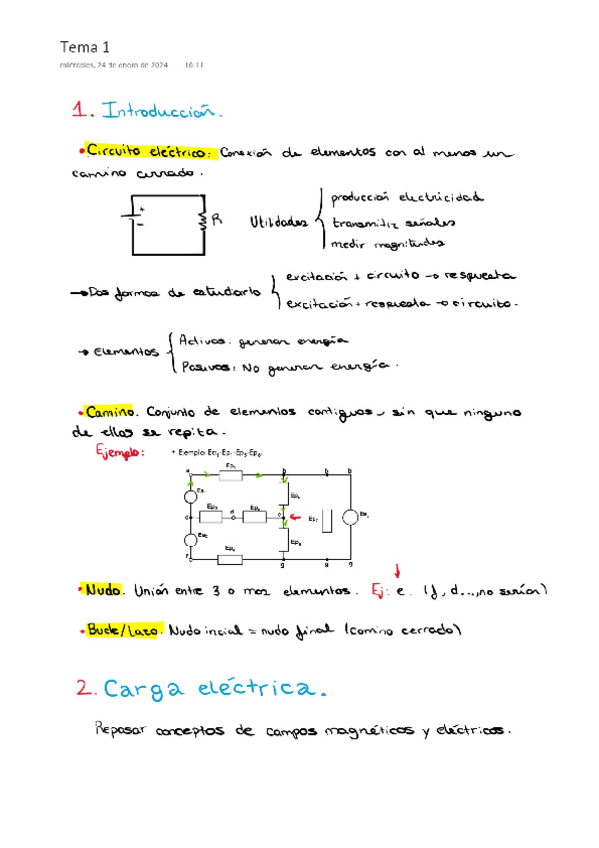 Tema 1
miércoles, 24 de enero de 2024 16:11
1. Introducción.
• Circuito eléctrico: Conexión de elementos con al menos un
camino cerrado.
+
-
R
Utilidades
producción electricidad
transmitir señales
medir magnitudes
→ Dos formas de estudiarlo
excitación + circuito → respuesta
excitación + respuesta → circuito.
→ Elementos
Activos: generan energía
Pasivos: No generan energía.
• Camino. Conjunto de elementos contiguos, sin que ninguno
de ellos se repita.
Ejemplo:
• Ejemplo: Eo₁-Ep₁-Ep₅-Ep₆.
a
Ep₁
b
b
b
Ep₅
c
d
e
f
g
g
g
• Nudo. Unión entre 3 o mas elementos. Ej: e. (f, d..., no serían)
• Bucle/Lazo. Nudo incial = nudo final (camino cerrado)
2. Carga eléctrica.
Repasar conceptos de campos magnéticos y eléctricos.